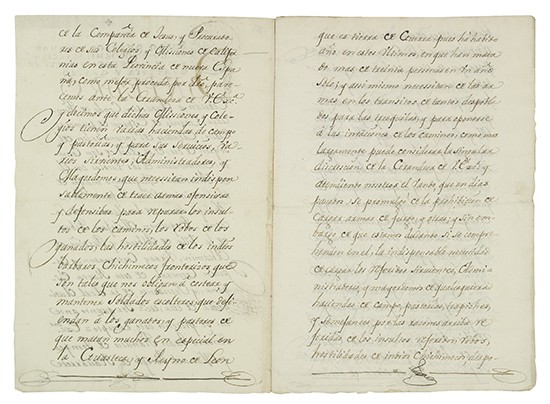 de la Compañia de Jesus, y Procurado
res de sus Colegios y Missiones de Califor
nias en esta Provincia de nueva Espa
ña, como mejor proceda por dro. pare
cemos ante la grandeza de V. Exª.
y decimos que dichas Missiones, y Cole
gios tienen varias haciendas de campo
y pastorias, y para sus servicios, va
rios sirvientes, Administradores, y
Mayordomos, que necesitan indispen
sablemente de traer armas ofensivas
y defensivas para reparar los insul
tos de los caminos, los robos de los
ganados, las hostilidades de los indios
barbaros Chichimecos fronterisos que
son tales que nos obligan a costear, y
mantener soldados escolteros que defi
endan a los ganados, y pastores de
que matan muchos en especial en
la Guasteca, y Reyno de Leon
que es tierra de Guerra pues ha habido
año en estos ultimos, en que han mata
do mas de treinta personas en un año
solo, y assi mismo necesitan de las ar
mas en los transitos de tantos despobla
dos, para las requas, y para oponerse
a las invasiones de los caminos, como mas
largamente puede considerar la singular
discrecion de la Grandeza de V. Exª. y
atendiendo nosotros el vando que en dias
passados se promulgó de la prohibicion de
cargar armas de fuego, y otras, y sin em
bargo de que estamos dudando si se compre
henden en el, la indispensable necesidad
de cargar los referidos sirvientes, Admi
nistradores, y mayordomos de qualesquiera
haciendas de campo, pastorias, trapiches,
y semejantes por las razones arriba re
feridas de los insultos referidos, robos,
hostilidades de indios Chichimecos, despo